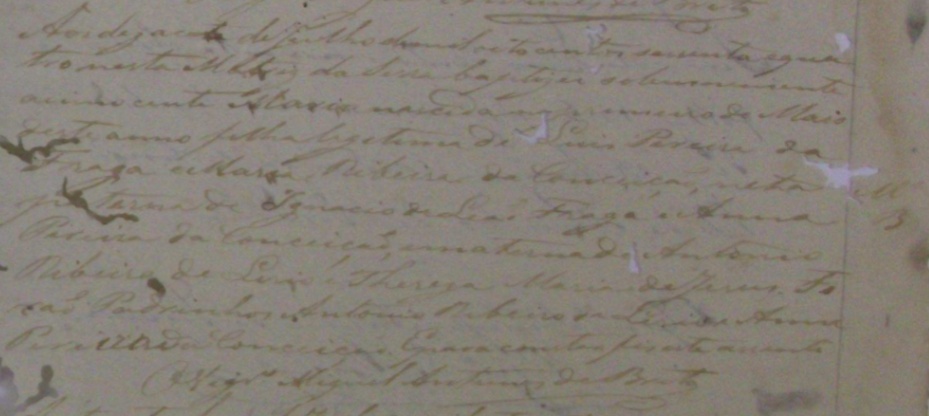 Antunes de Brito
Aos dezacete de Julho de mil oito centos secenta e qua
tro nesta Matriz da Serra baptizei solemnemente
a innocente Maria nascida no primeiro de Maio
deste anno filha legitima de Luis Pereira da
Fraga e Maria Ribeira da Conceiçaõ, neta
paterna de Ignacio de Leaõ Fraga e Anna
Pereira da Conceiçaõ, e materna de Antonio
Ribeiro de e Thereza Maria de Jesus. Fo
raõ Padrinhos Antonio Ribeiro de e Anna
Pereira da Conceiçaõ. E para constar fis este assento
O Vigrº Miguel Antunes de Brito